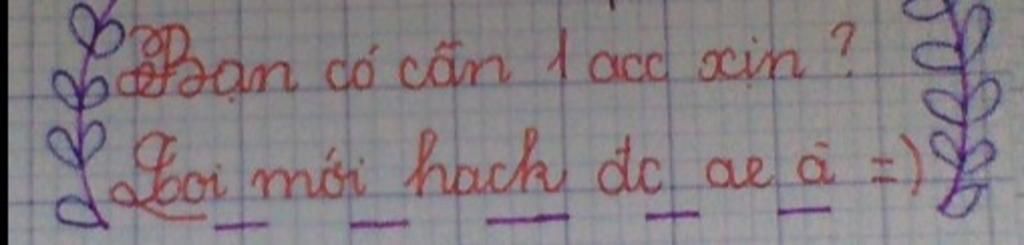 Bạn có cần 1 acc xin ?
Loi mới hack dc ae à =)